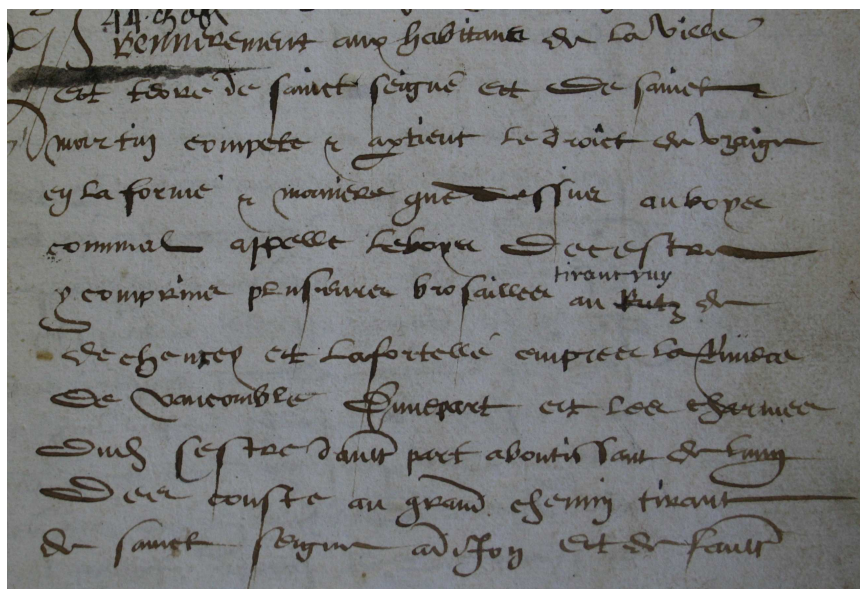 44. chef
Premierement aux habitans de la ville
Et terre de sainct seigne et de sainct
martin compete & aptient le droict du vsaige
en la forme & maniere que dessus au boys
commal appelle le boys de cestre
tirant ruy
y comprins plusieurs brosailles au Rutz de
de chencey et la fortelle empres la Riviere
de vaucomble d'une part et les charmes
dud sestre d'aultr part aboutissant de lung
des couste au grand chemin tirant
de sainct seigne a dijon et de laultr